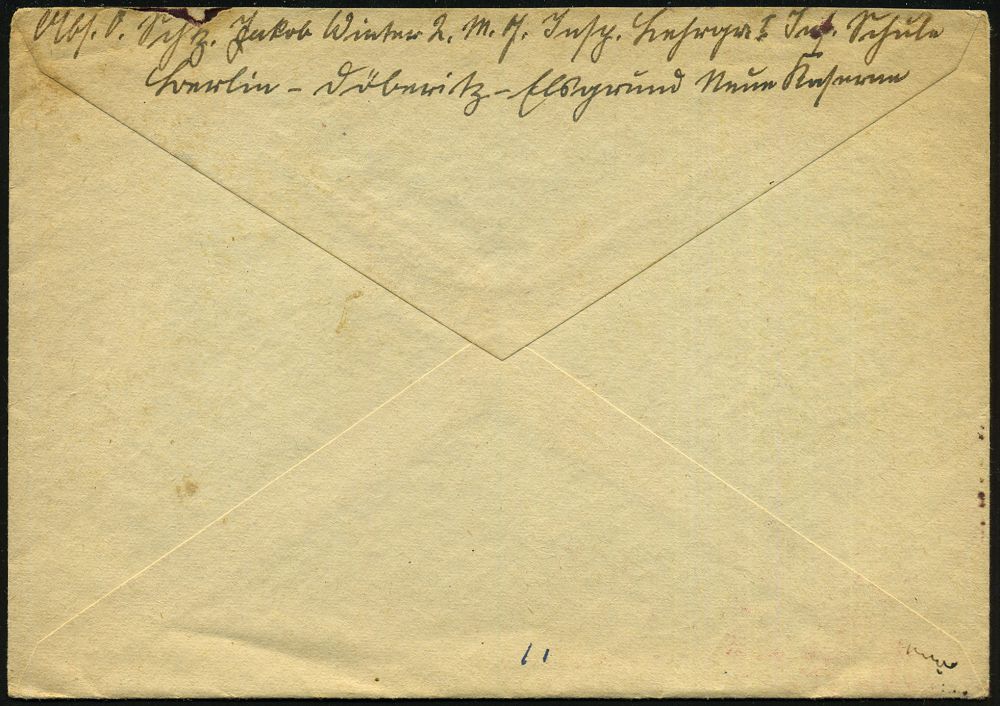 Abs. O. Schtz. Jakob Winter 2. M. J. Insp. Lehrgr. I Inf. Schule
Berlin – Döberitz – Elsgrund Neue Kaserne
11